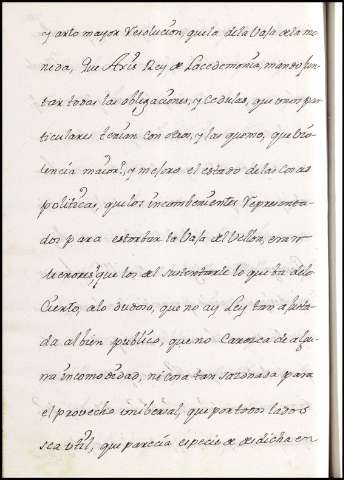 y arto mayor resolucion, que la de la vaja de la mo
neda, que Axis Rey de Lacedemonia, mando jun
tar todas las obligaciones, y cedulas, que unos par
ticulares tenian con otros, y las quemo, que vio
lencia maior, y mejoro el estado de las cosas
politicas, que los incombenientes representa
dos para estorbar la vaja del vellon, eran
menores, que los del sustentarle lo que ba delo
cierto, alo dudoso, que no ay Ley tan ajusta
da al bien publico, que no carezca de algu
na incomodidad, ni cosa tan sazonada para
el provecho unibersal, que por todos lados
sea util, que parecia especie de desdicha en